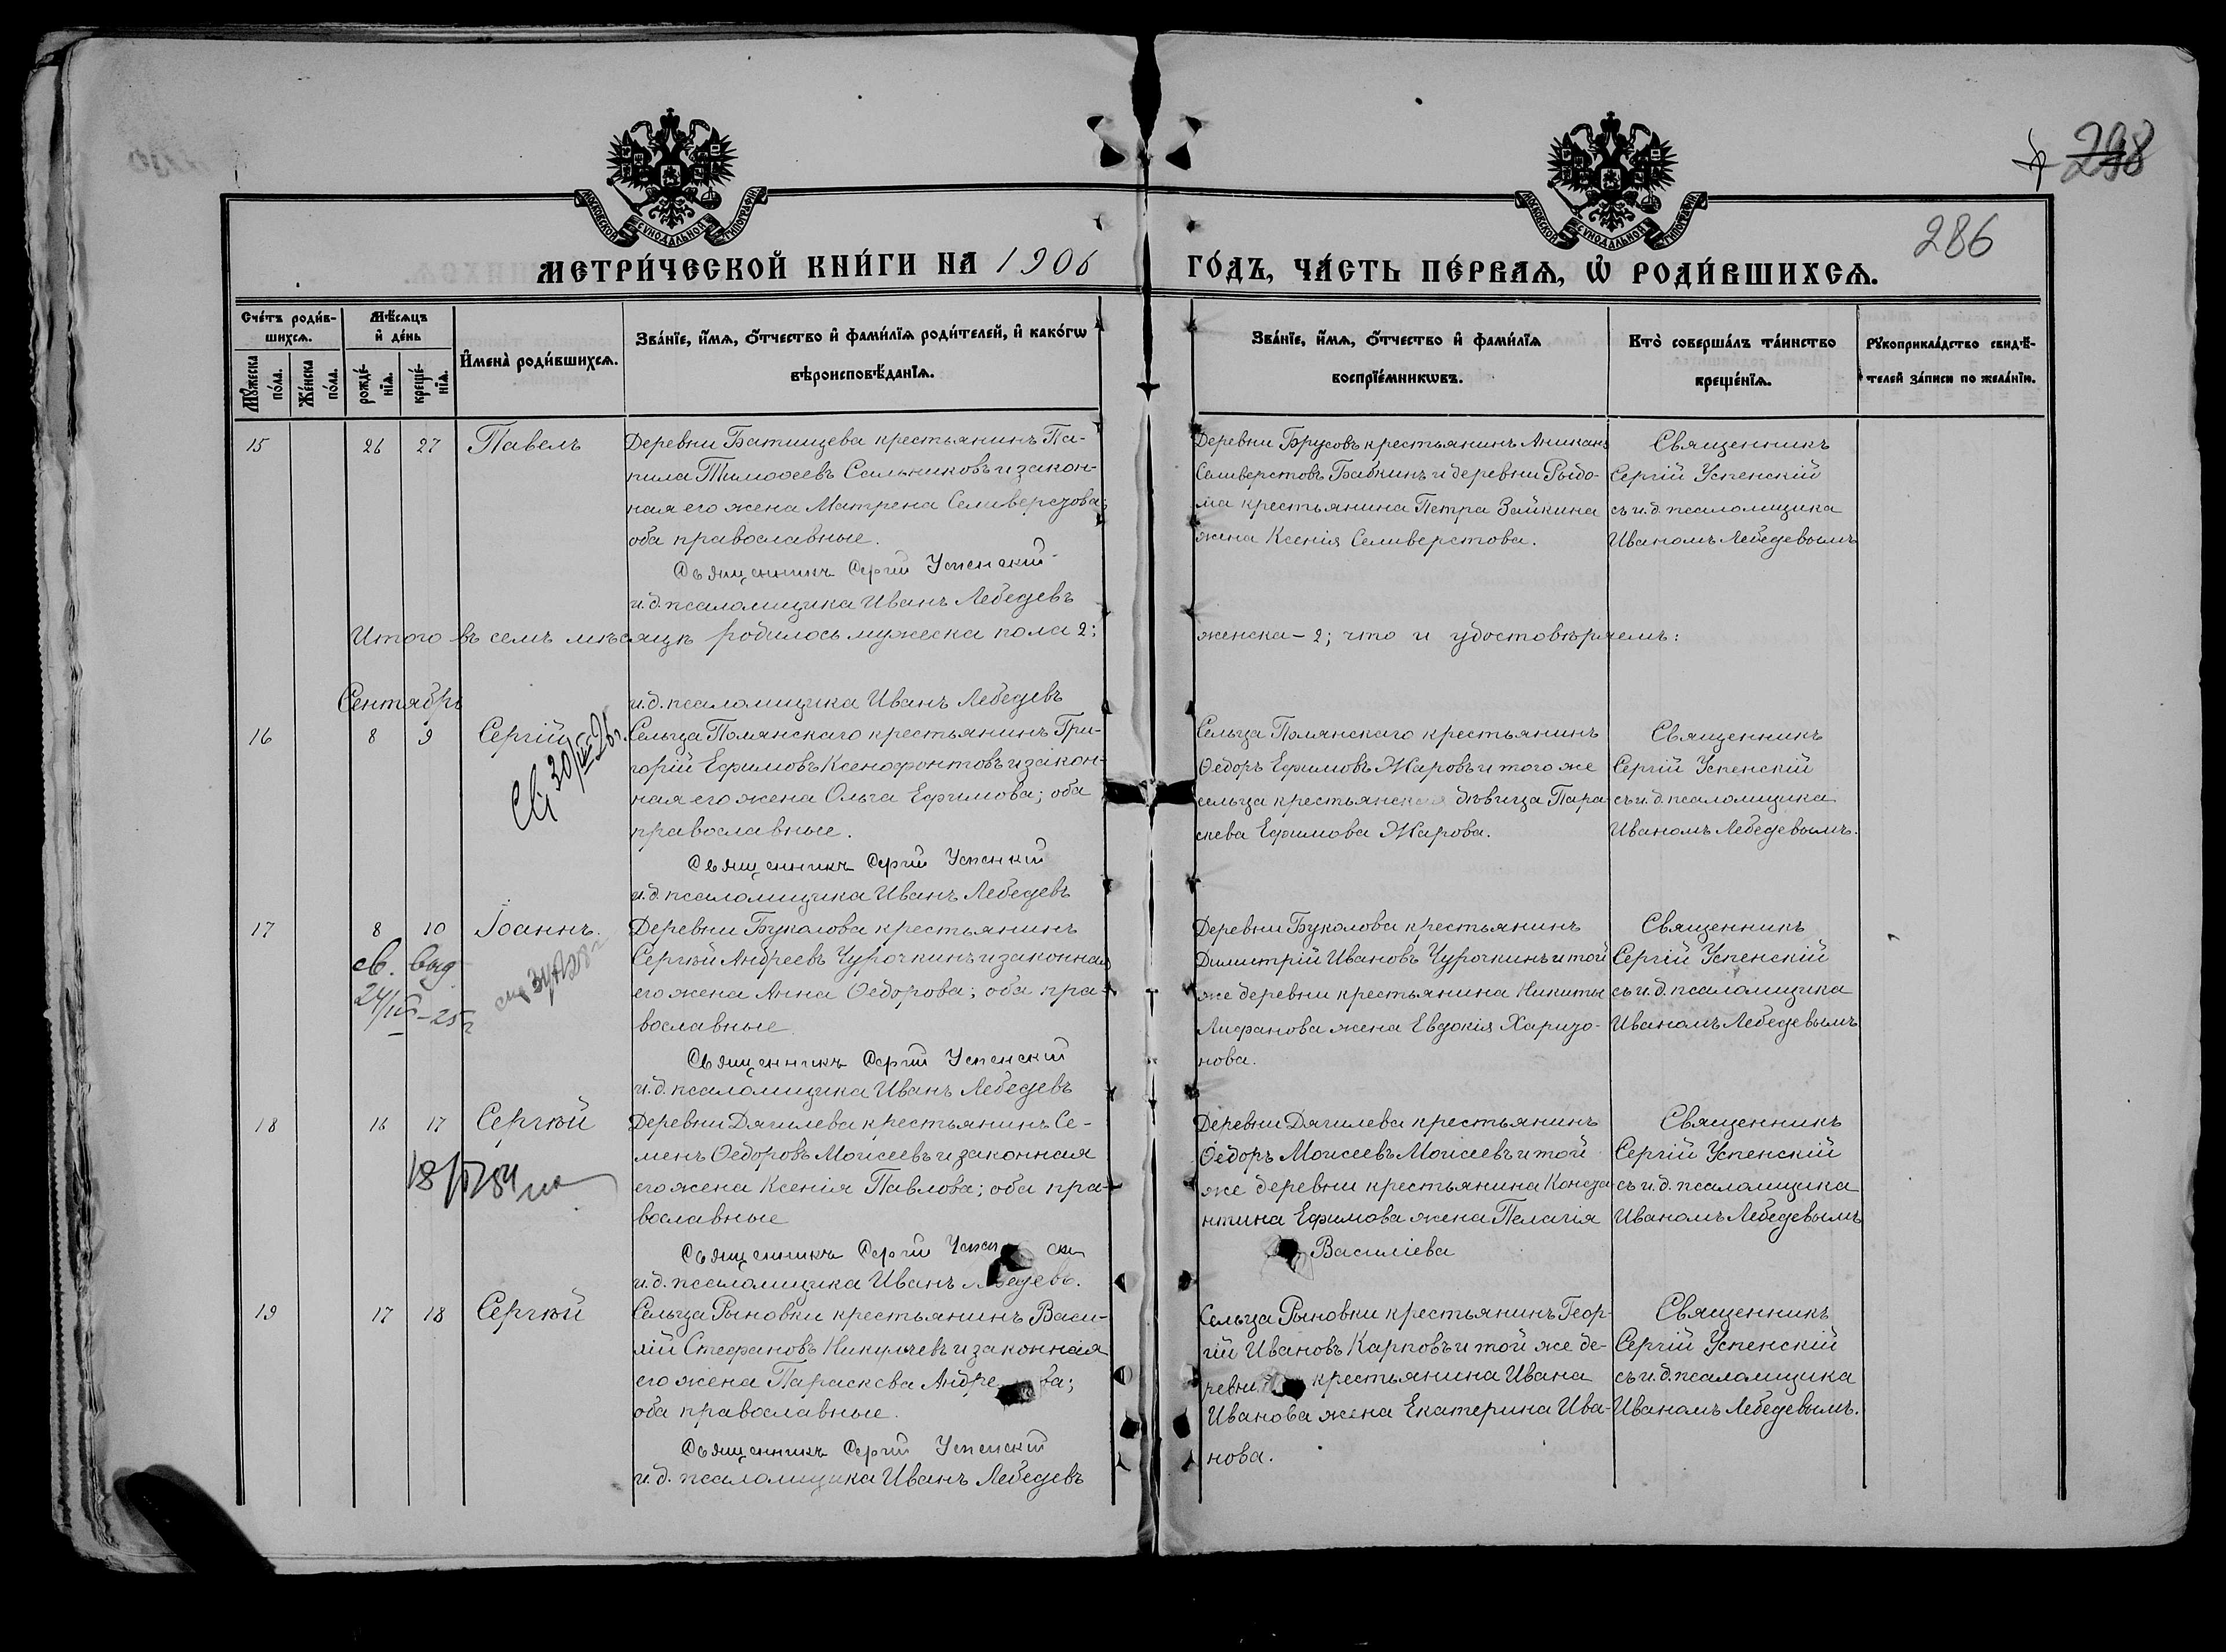 298
286
МОСКОВСКОЙ СѴНОДАЛЬНОЙ ТИПОГРАФІИ
МОСКОВСКОЙ СѴНОДАЛЬНОЙ ТИПОГРАФІИ
МЕТРИ́ЧЕСКОЙ КНИ́ГИ НА 1906 ГО́ДЪ, ЧА́СТЬ ПЕ́РВАѦ, Ѡ҆ РОДИ́ВШИХСѦ.
Сче́тъ роди́в-
шихсѧ.
Мꙋ́жеска по́ла.
Же́нска по́ла.
Мѣ́сѧцъ
и҆ де́нь
рожде́-нїѧ.
креще́-нїѧ.
И҆мена̀ роди́вшихсѧ.
Зва́нїе, и҆́мѧ, ѻ҆́тчество и҆ фами́лїѧ роди́телей, и҆ како́гѡ
вѣроисповѣ́данїѧ.
Зва́нїе, и҆́мѧ, ѻ҆́тчество и҆ фами́лїѧ
воспрїе́мникѡвъ.
Кто̀ соверша́лъ та́инство
креще́нїѧ.
Рꙋкоприкла́дство свидѣ́-
телей за́писи по жела́нїю.
15 26 27 Павелъ
Деревни Батищева крестьянинъ Па-
нила Тимоѳеевъ Сальниковъ и закон-
ная его жена Матрена Селиверстова;
оба православные.
Священникъ Сергій Успенскій
и.д. псаломщика Иванъ Лебедевъ
Деревни Брусовъ крестьянинъ Аникакъ
Селиверстовъ Бабкинъ и деревни Рыдо-
ма крестьянина Петра Зайкина
жена Ксенія Селиверстова.
Священникъ
Сергій Успенскій
съ и.д. псаломщика
Иваномъ Лебедевымъ
Итого въ семъ мѣсяцѣ родилось мужеска пола 2; женска – 2; что и удостовѣряемъ:
и.д. псаломщика Иванъ Лебедевъ
Сентябрь
16 8 9 Сергій
Сельца Полянскаго крестьянинъ Гри-
горій Ефимовъ Ксенофонтовъ и закон-
ная его жена Ольга Ефимова; оба
православные.
Священникъ Сергій Успенкій
и.д. псаломщика Иванъ Лебедевъ
Сельца Полянскаго крестьянинъ
Ѳедоръ Ефимовъ Жаровъ и того же
сельца крестьянская дѣвица Пара-
скева Ефимова Жарова.
Священникъ
Сергій Успенскій
съ и.д. псаломщика
Иваномъ Лебедевымъ.
17 8 10 Іоаннъ.
св. выд
Деревни Буколова крестьянинъ
Сергѣй Андреевъ Чурочкинъ и законная
его жена Анна Ѳедорова; оба пра-
вославные
Священникъ Сергій Успенскій
и.д. псаломщика Иванъ Лебедевъ
Деревни Буколова крестьянинъ
Димитрій Ивановъ Чурочкинъ и той
же деревни крестьянина Никиты
Лифанова жена Евдокія Харито-
нова.
Священникъ
Сергій Успенскій
съ и.д. псаломщика
Иваномъ Лебедевымъ
18 16 17 Сергѣй
Деревни Дягилева крестьянинъ Се-
менъ Ѳедоровъ Моисеевъ и законная
его жена Ксенія Павлова; оба пра-
вославные
Священникъ Сергій
и.д. псаломщика Иванъ Лебедевъ.
Деревни Дягилева крестьянинъ
Ѳедоръ Моисеевъ Моисеевъ и той
же деревни крестьянина Конста-
нтина Ефимова жена Пелагія
Василіева
Священникъ
Сергій Успенскій
съ и.д. псаломщика
Иваномъ Лебедевымъ
19 17 18 Сергѣй
Сельца Рыновки крестьянинъ Васи-
лій Стефановъ Никулчевъ и законная
его жена Параскева
оба православные.
Священникъ Сергій Успенскій
и.д. псаломщика Иванъ Лебедевъ
Сельца Рыновки крестьянинъ Геор-
гій Ивановъ Карповъ и той же де-
ревни крестьянина Ивана
Иванова жена Екатерина Ива-
нова.
Священникъ
Сергій Успенскій
съ и.д. псаломщика
Иваномъ Лебедевымъ.